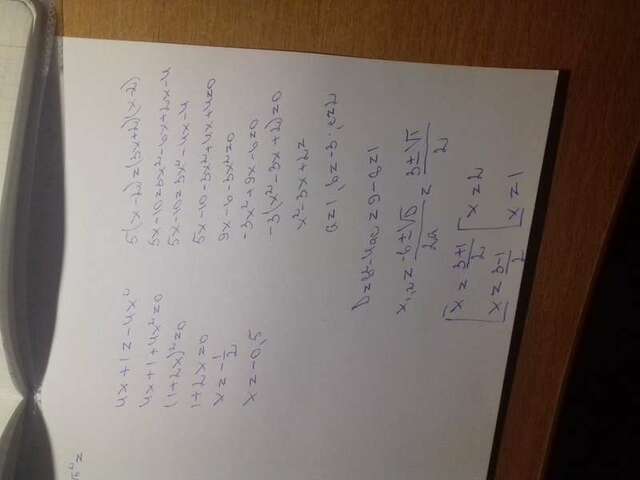 4x+1=-4x²
4x+1+4x²=0
(1+2x)²=0
1+2x=0
x=-1/2
x=-0,5
5(x-2)=(3x+2)(x-2)
5x-10=3x²-6x+2x-4
5x-10=3x²-4x-4
5x-10-3x²+4x+4=0
9x-6-3x²=0
-3x²+9x-6=0
-3(x²-3x+2)=0
x²-3x+2=
a=1, b=-3; c=2
D=b²-4ac=9-8=1
x₁,₂=(-b±√D)/2a=(3±√1)/2
[x=(3+1)/2 [x=2
x=(3-1)/2 x=1